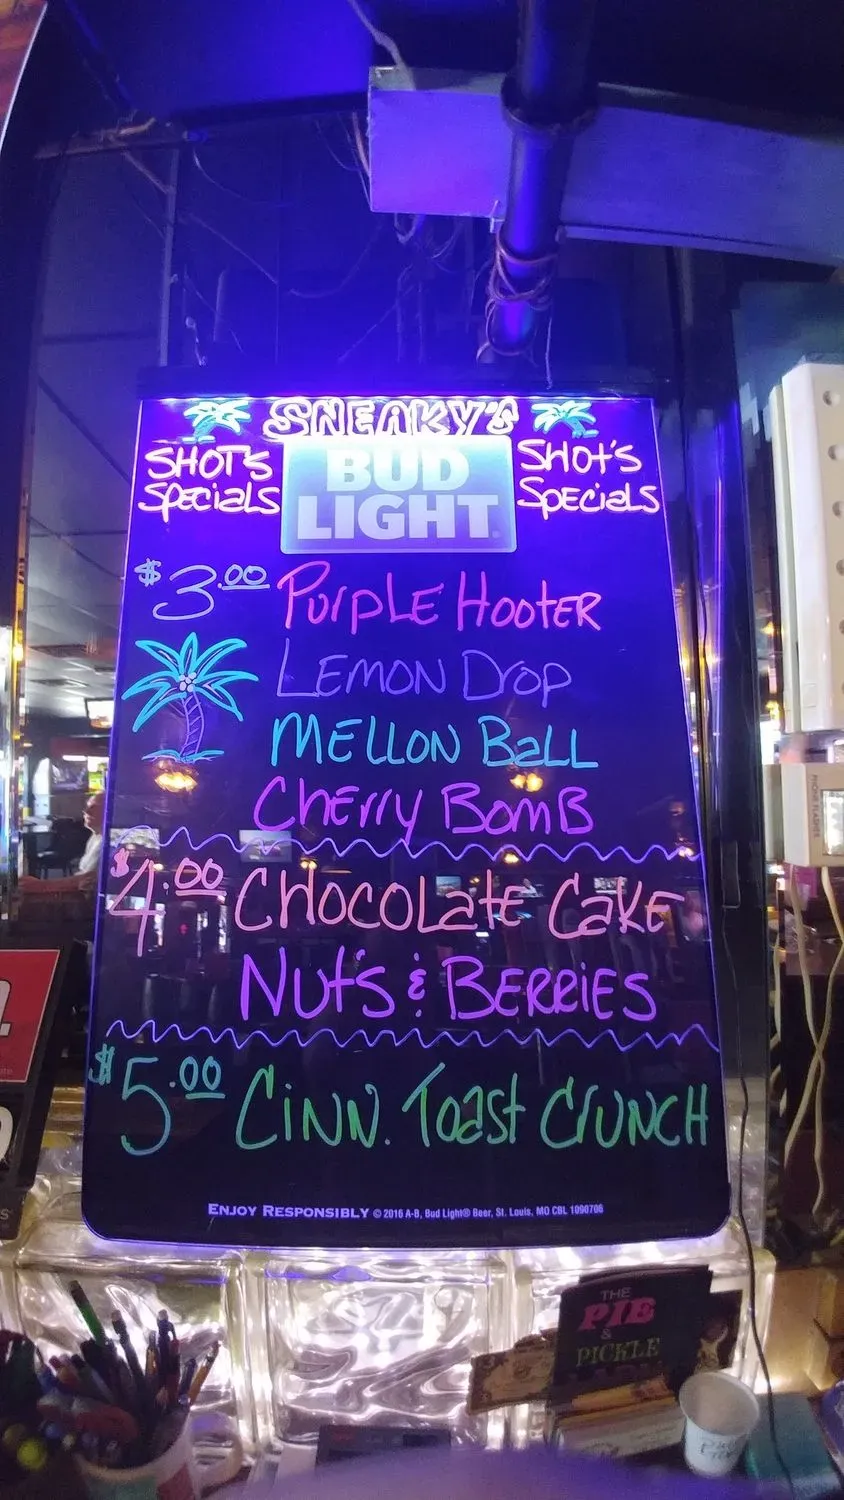 SNEAKY'S
SHOT'S
Specials
BUD
LIGHT
SHOt'S
Specials
$3.00 PurpLE HOOTER
LEMON DrOP
MELLON BaLL
CHErry BomB
$4.00 CHOCOLatE CaKE
Nut'S & BERRiES
$5.00 CiNN. Toast CrUNCH
ENJOY RESPONSIBLY © 2016 A-B, Bud Light® Beer, St. Louis, MO CBL 1090706
THE
PIE
&
PICKLE